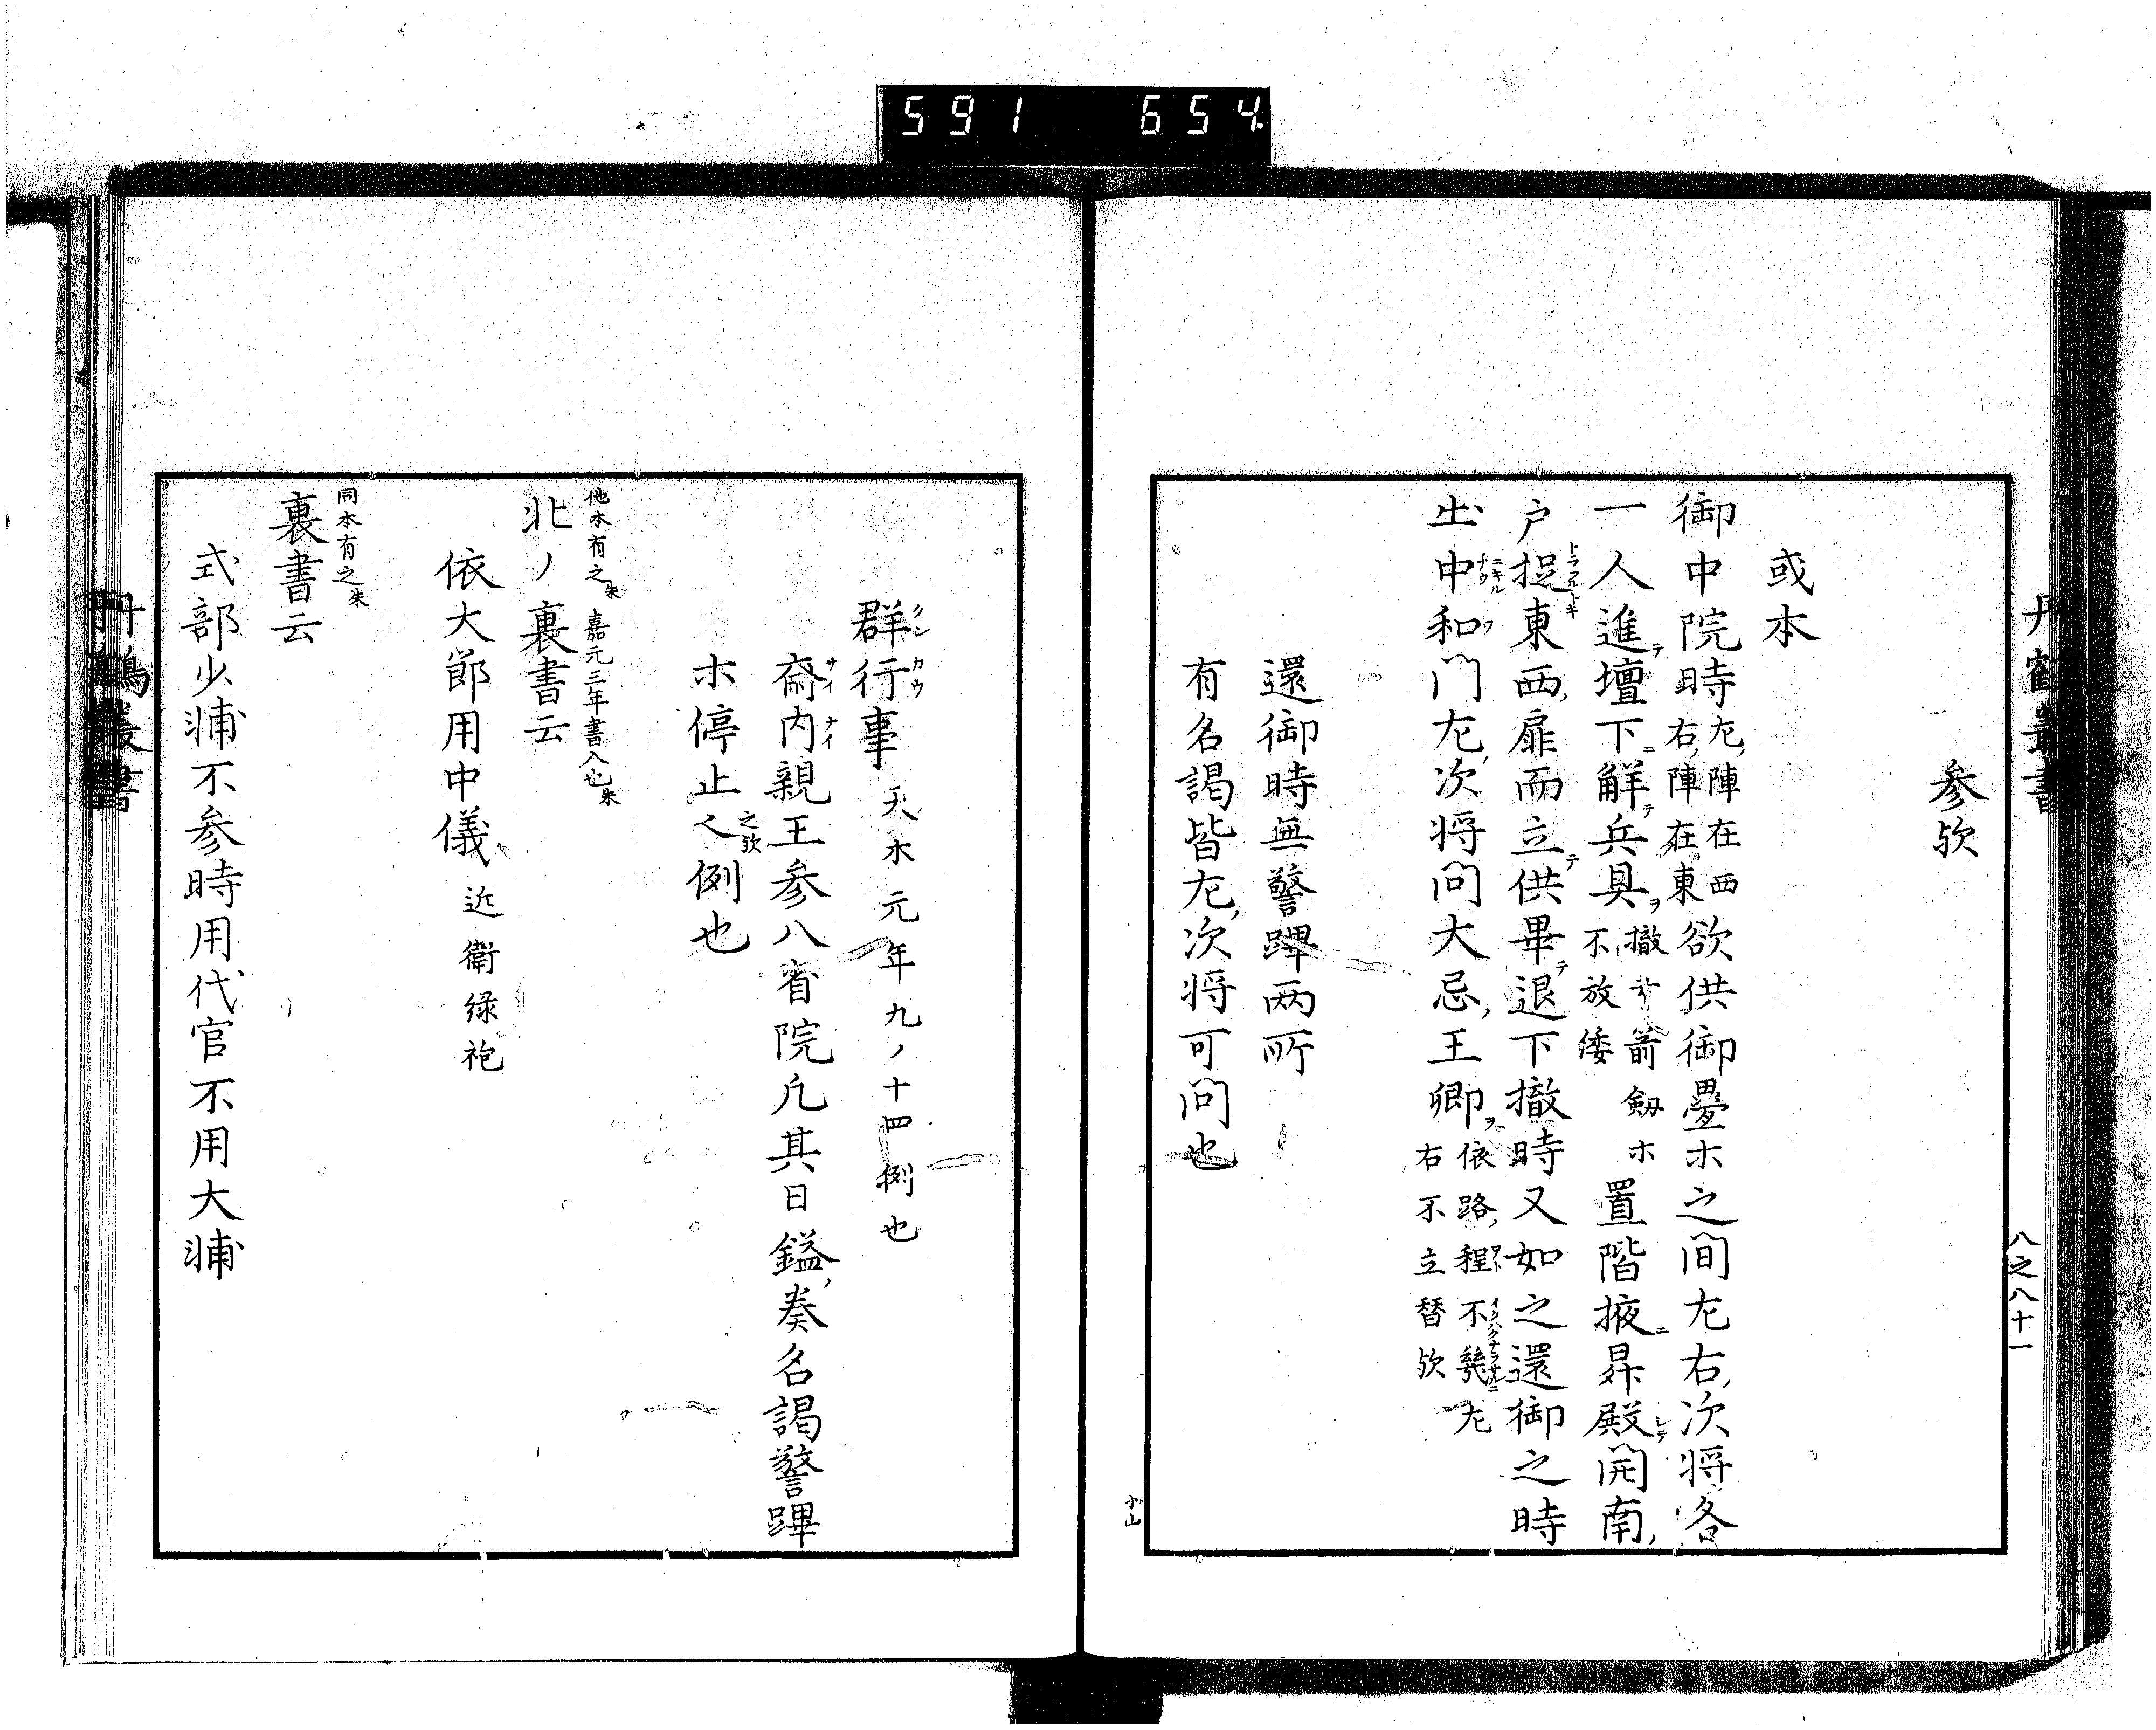 591 654
丹鶴叢書
八之八十一
参欤
或本
御中院時左陣在西右陣在東欲供御疊ホ之間左右次将各
一人進テ壇下ニ解テ兵具ヲ撤弓箭劔ホ不放倭置階掖ニ昇殿シテ開南
戸捉東西扉而立テ供畢テ退下撤時又如之還御之時
出中和門左次将問大忌王卿ヲ依路程不幾左右不立替欤
還御時無警蹕两所
有名謁皆左次将可問也
小山
群行事 天永元年九ノ十四例也
クンカウ
斎内親王参八省院凡其日鎰奏名謁警蹕
サイナイ
ホ停止之例也
之欤
他本有之朱 嘉元三年書入也朱
北ノ裏書云
依大節用中儀 近衛緑袍
同本有之朱
裏書云
式部少輔不参時用代官不用大輔
丹鶴叢書